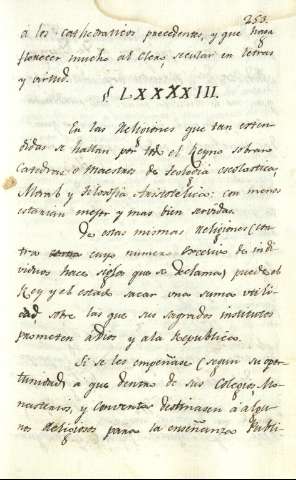 253.
á los cathedraticos precedentes, y que haga
florecer mucho al Clero secular en letras
y virtud.
§ LXXXXIII.
En las Religiones que tan esten-
didas se hallan por todo el Reyno sobran
Catedras o Maestros de teologia escolastica,
Moral y Filosofia Aristotelica: con menos
estarian mejor y mas bien servidas.
De estas mismas Religiones (con-
tra cuyo numero excesivo de indi-
viduos hace siglos que se declama) puede el
Rey y el estado sacar una suma utili-
dad sobre las que sus sagrados institutos
prometen a Dios y a la Republica.
Si se les empeñase (segun su opor-
tunidad) a que dentro de sus Colegios Mo-
nasterios, y Conventos destinasen á algu-
nos Religiosos para la enseñanza Publi-